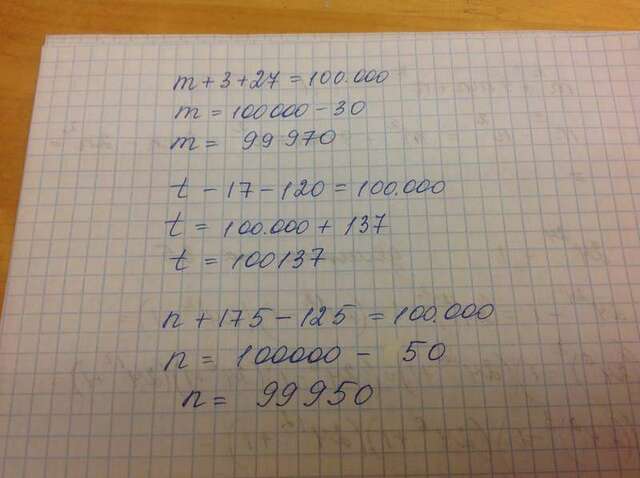 m + 3 + 27 = 100.000
m = 100000 - 30
m = 99970
t - 17 - 120 = 100.000
t = 100.000 + 137
t = 100137
n + 175 - 125 = 100.000
n = 100000 - 50
n = 99950